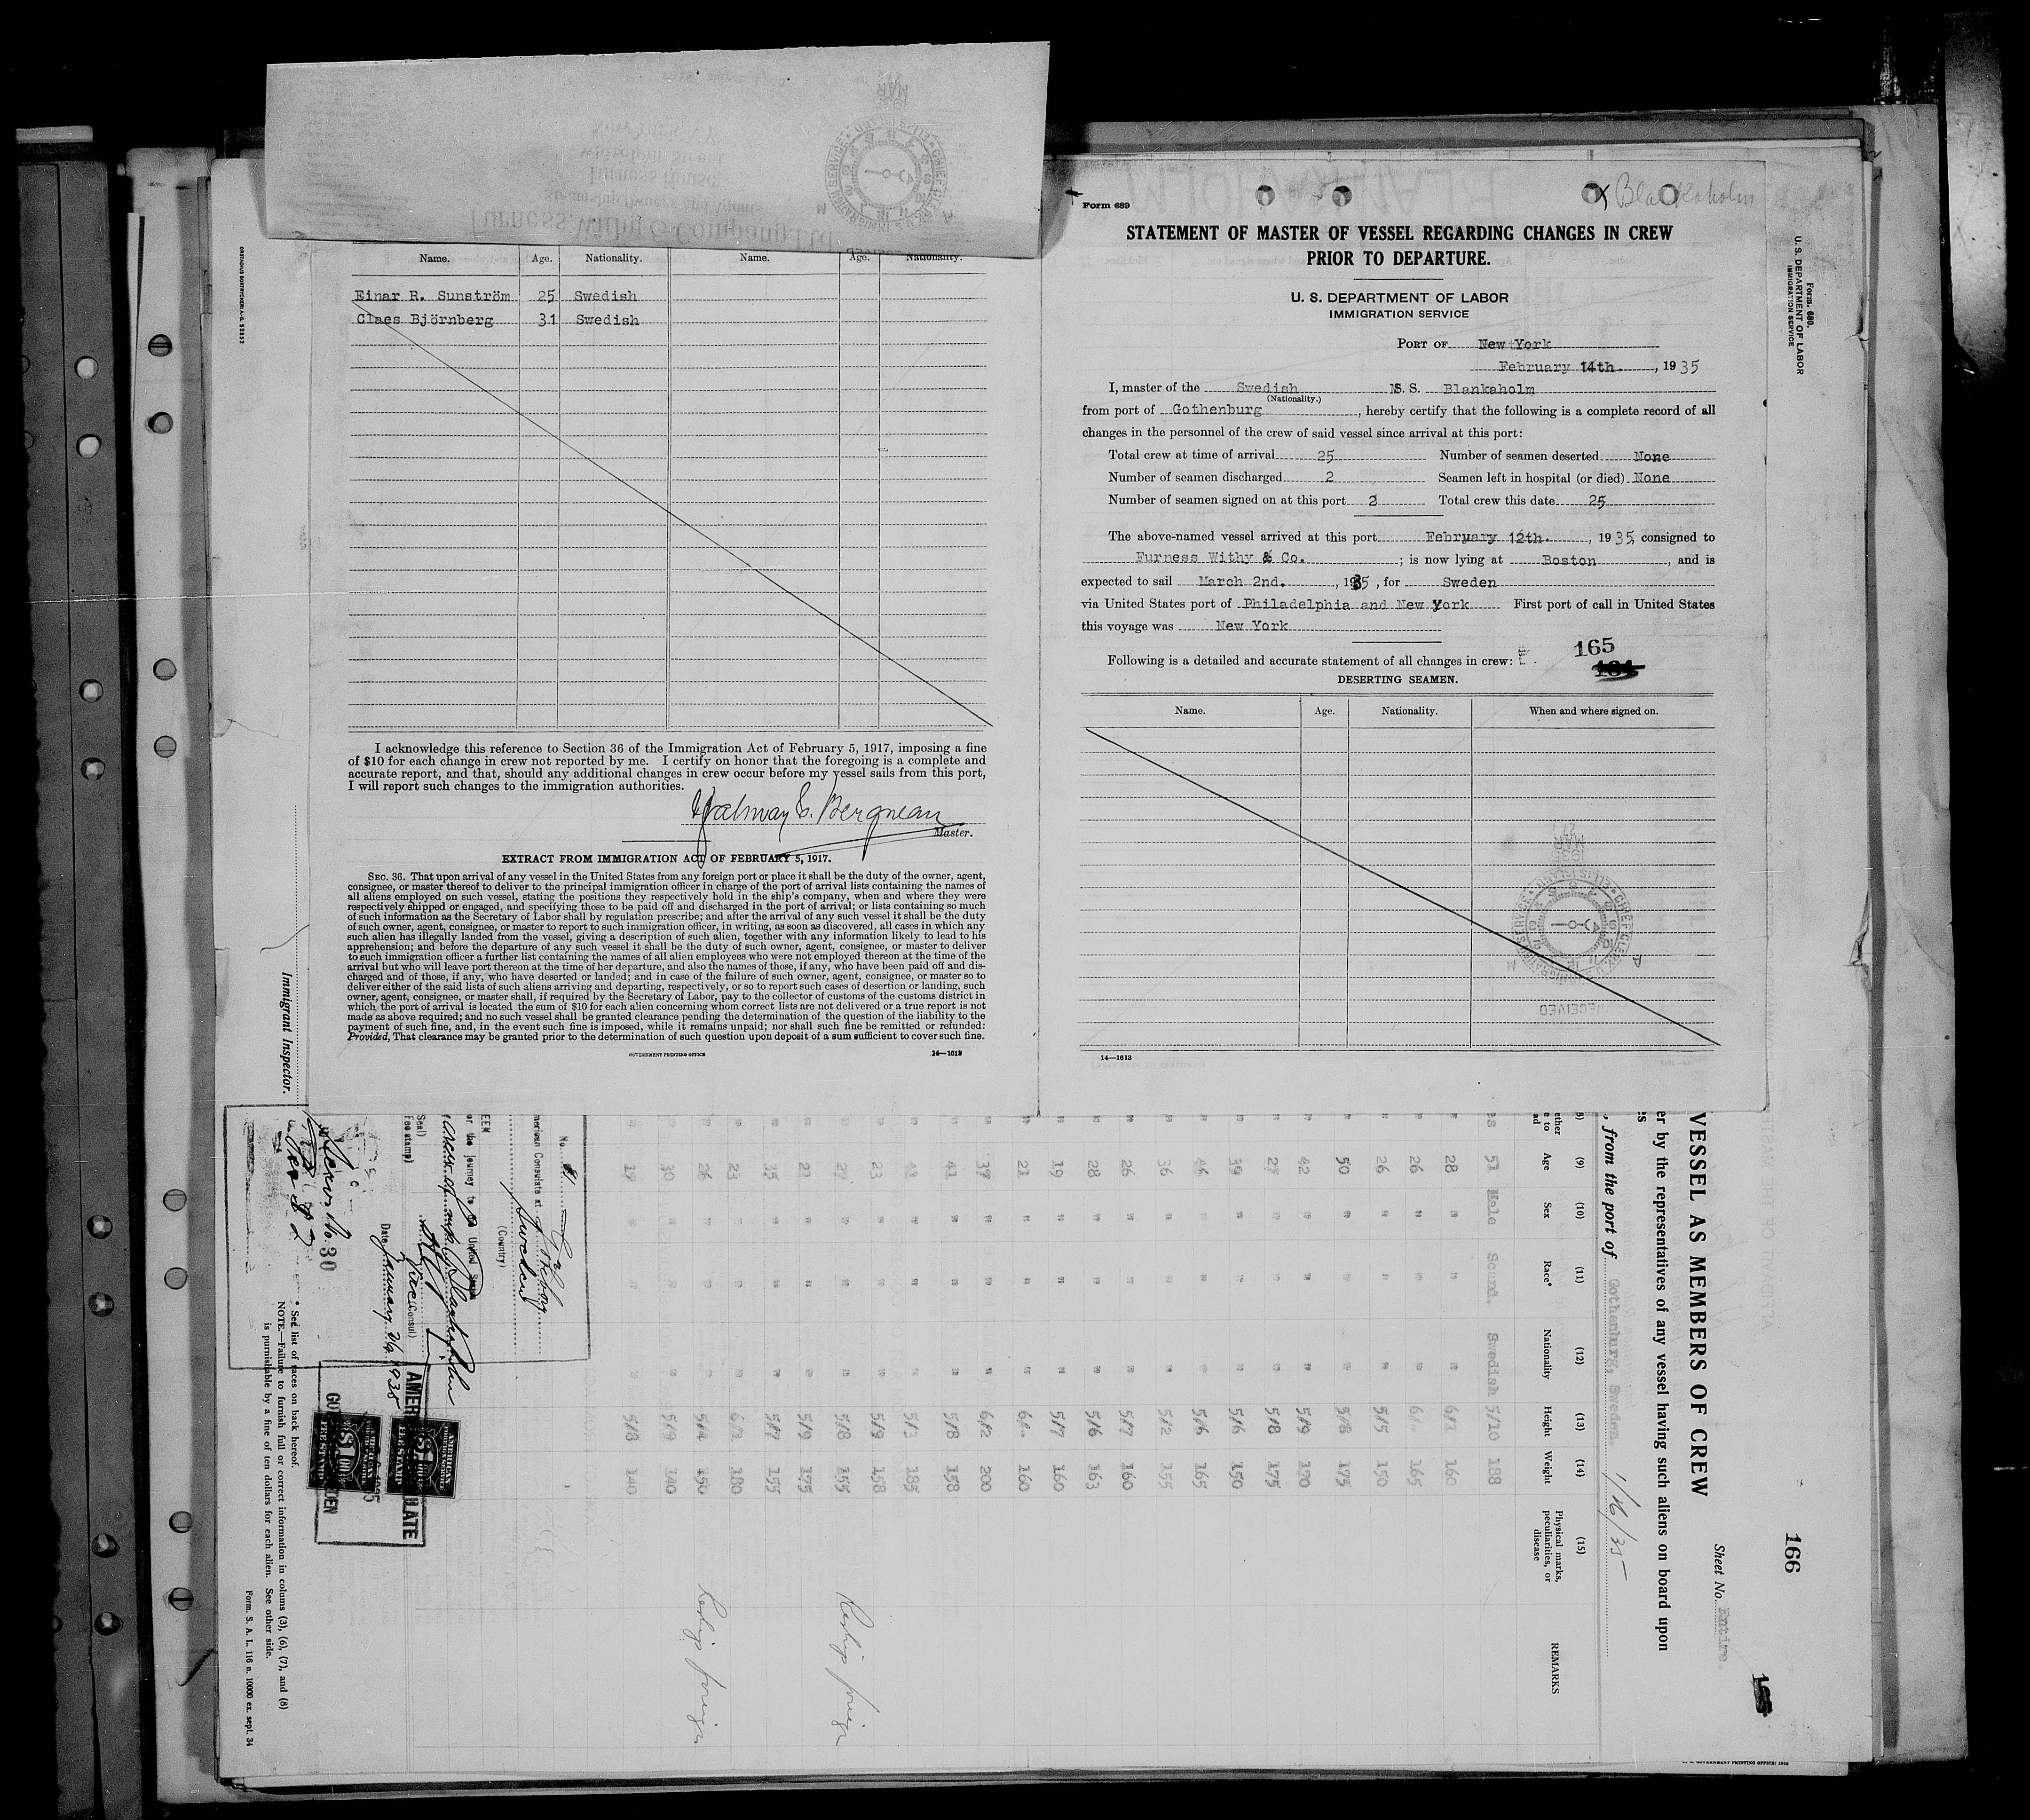 Furness, Withy & Company, Ltd.
Steamship Owners and Agents
Furness House
Whitehall Street
Name. Age. Nationality. Name. Age. Nationality.
Einar R. Sunström 25 Swedish
Claes Björnberg 31 Swedish
I acknowledge this reference to Section 36 of the Immigration Act of February 5, 1917, imposing a fine
of $10 for each change in crew not reported by me. I certify on honor that the foregoing is a complete and
accurate report, and that, should any additional changes in crew occur before my vessel sails from this port,
I will report such changes to the immigration authorities.
Master.
EXTRACT FROM IMMIGRATION ACT OF FEBRUARY 5, 1917.
SEC. 36. That upon arrival of any vessel in the United States from any foreign port or place it shall be the duty of the owner, agent,
consignee, or master thereof to deliver to the principal immigration officer in charge of the port of arrival lists containing the names of
all aliens employed on such vessel, stating the positions they respectively hold in the ship's company, when and where they were
respectively shipped or engaged, and specifying those to be paid off and discharged in the port of arrival; or lists containing so much
of such information as the Secretary of Labor shall by regulation prescribe; and after the arrival of any such vessel it shall be the duty
of such owner, agent, consignee, or master to report to such immigration officer, in writing, as soon as discovered, all cases in which any
such alien has illegally landed from the vessel, giving a description of such alien, together with any information likely to lead to his
apprehension; and before the departure of any such vessel it shall be the duty of such owner, agent, consignee, or master to deliver
to such immigration officer a further list containing the names of all alien employees who were not employed thereon at the time of the
arrival but who will leave port thereon at the time of her departure, and also the names of those, if any, who have been paid off and dis-
charged and of those, if any, who have deserted or landed; and in case of the failure of such owner, agent, consignee, or master so to
deliver either of the said lists of such aliens arriving and departing, respectively, or so to report such cases of desertion or landing, such
owner, agent, consignee, or master shall, if required by the Secretary of Labor, pay to the collector of customs of the customs district in
which the port of arrival is located the sum of $10 for each alien concerning whom correct lists are not delivered or a true report is not
made as above required; and no such vessel shall be granted clearance pending the determination of the question of the liability to the
payment of such fine, and, in the event such fine is imposed, while it remains unpaid; nor shall such fine be remitted or refunded:
Provided, That clearance may be granted prior to the determination of such question upon deposit of a sum sufficient to cover such fine.
GOVERNMENT PRINTING OFFICE 14—1613
Form 689
x Blankaholm
STATEMENT OF MASTER OF VESSEL REGARDING CHANGES IN CREW
PRIOR TO DEPARTURE.
U. S. DEPARTMENT OF LABOR
IMMIGRATION SERVICE
PORT OF New York
February 14th, 1935
I, master of the Swedish M.S. Blankaholm
(Nationality.)
from port of Gothenburg, hereby certify that the following is a complete record of all
changes in the personnel of the crew of said vessel since arrival at this port:
Total crew at time of arrival 25 Number of seamen deserted None
Number of seamen discharged 2 Seamen left in hospital (or died) None
Number of seamen signed on at this port 2 Total crew this date 25
The above-named vessel arrived at this port February 12th, 1935, consigned to
Furness Withy & Co.; is now lying at Boston, and is
expected to sail March 2nd., 1935, for Sweden
via United States port of Philadelphia and New York First port of call in United States
this voyage was New York
165
Following is a detailed and accurate statement of all changes in crew:
DESERTING SEAMEN.
Name. Age. Nationality. When and where signed on.
RECEIVED
14—1613
Form. 680.
U. S. DEPARTMENT OF LABOR
IMMIGRATION SERVICE
166
Sheet No. Entire.
VESSEL AS MEMBERS OF CREW
er by the representatives of any vessel having such aliens on board upon
, from the port of Gothenburg, Sweden. 1/26/35
(9) (10) (11) (12) (13) (14) (15)
Age Sex Race* Nationality Height Weight Physical marks, peculiarities, or disease REMARKS
51 Male Scand. Swedish 5/10 188
28 " " " 160
26 " " " 165
26 " " " 5/5 150
50 " " " 5/8 175
42 " " " 5/9 170
27 " " " 5/8 175
39 " " " 5/6 150
46 " " " 5/6 165
36 " " " 5/2 155
26 " " " 5/7 160
28 " " " 5/6 163
19 " " " 5/7 160
21 " " " 160
37 " " " 6/2 200
41 " " " 5/8 158
43 " " " 5/3 185
23 " " " 5/9 158
27 " " " 5/8 155 Reship foreign
23 " " " 5/9 175
35 " " " 5/7 155
23 " " " 180
26 " " " 150 Reship foreign
30 " " " 5/9 140
19 " " " 5/8 140
No. 81
American Consulate at Gothenburg
Sweden
(Country)
or the journey to the United States
Vice Consul
Date January 26, 1935
Service No. 30
AMERICAN FOREIGN SERVICE $1.00 FEE STAMP
Immigrant Inspector.
* See list of races on back hereof.
NOTE.—Failure to furnish full or correct information in colums (3), (6), (7), and (8)
is punishable by a fine of ten dollars for each alien. See other side.
Form. S. A. L. 116 n. 10000 ex. sept. 34